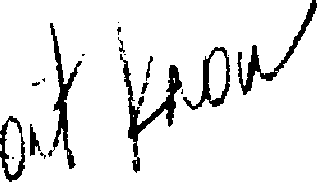 out know